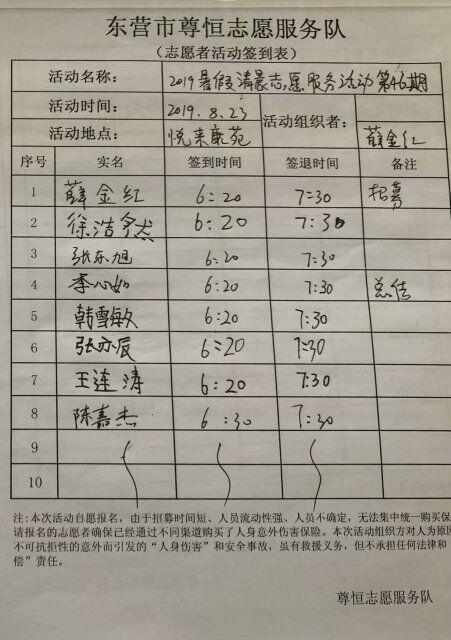 东营市尊恒志愿服务队
（志愿者活动签到表）
活动名称： 2019暑假清晨志愿服务活动第46期
活动时间： 2019.8.23 活动组织者： 薛金红
活动地点： 悦来康苑
序号 实名 签到时间 签退时间 备注
1 薛金红 6:20 7:30 招募
2 徐浩然 6:20 7:30
3 张东旭 6:20 7:30
4 李心如 6:20 7:30 总结
5 韩雪敏 6:20 7:30
6 张亦辰 6:20 7:30
7 王连涛 6:20 7:30
8 陈嘉杰 6:30 7:30
9
10
注:本次活动自愿报名，由于招募时间短、人员流动性强、人员不确定，无法集中统一购买保
请报名的志愿者确保已经通过不同渠道购买了人身意外伤害保险。本次活动组织方对人为原因
不可抗拒性的意外而引发的“人身伤害”和安全事故，虽有救援义务，但不承担任何法律和
偿”责任。
尊恒志愿服务队